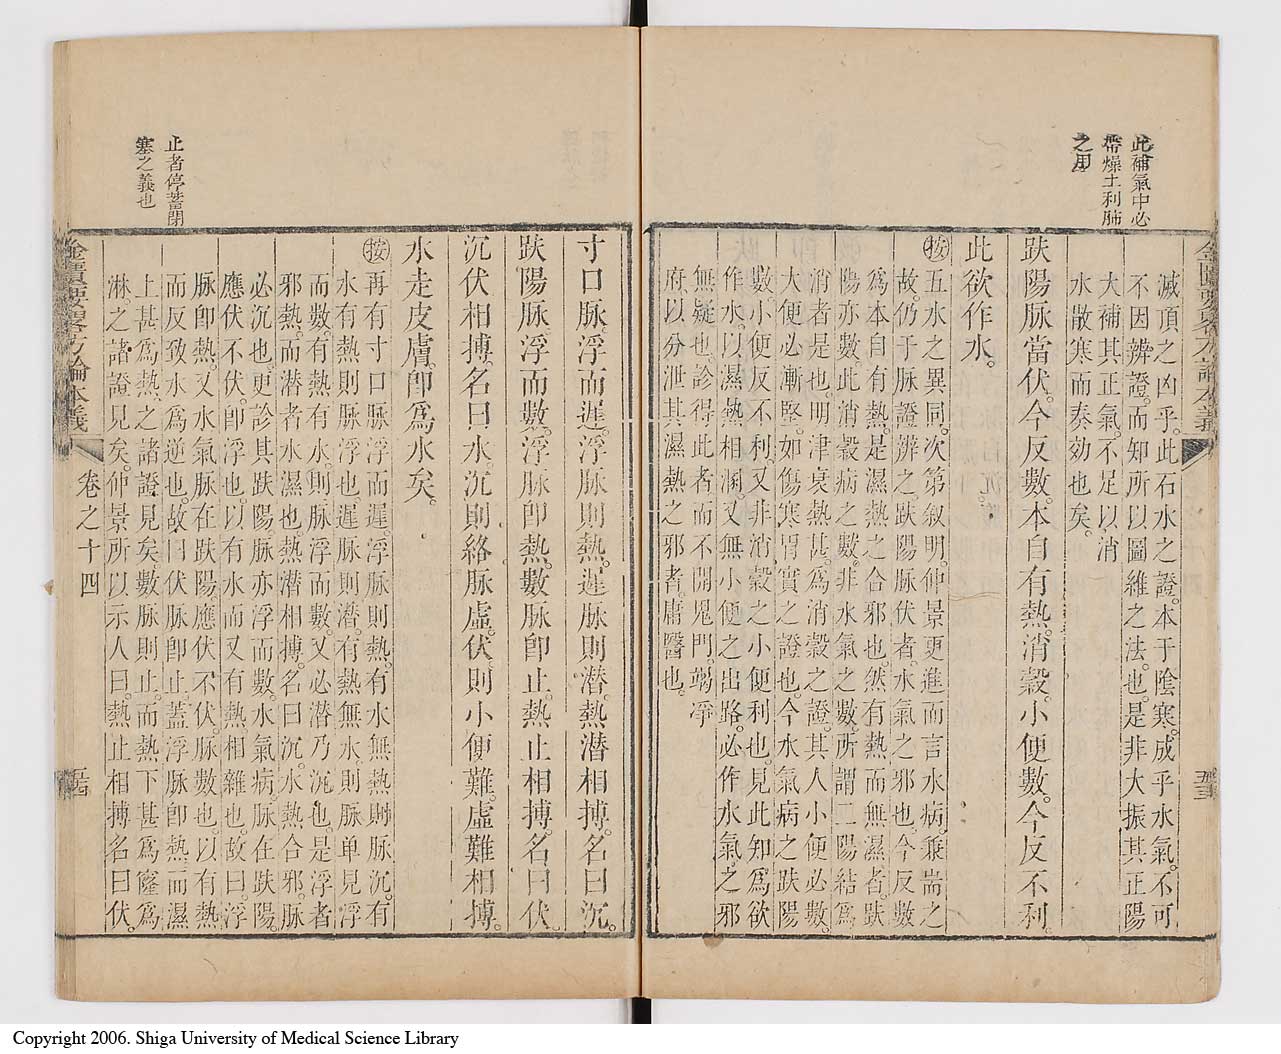 此補氣中必
帶燥土利肺
之用
滅頂之凶乎。此石水之證。本于陰寒。成乎水氣。不可
不因辨證。而知所以圖維之法。也。是非大振其正陽
大補其正氣。不足以消
水散寒。而奏効也矣。
趺陽脉當伏。今反數。本自有熱。消穀。小便數。今反不利。
此欲作水。
按五水之異同。次第叙明。仲景更進而言水病。兼耑之
故。仍于脉證辨之。趺陽脉伏者。水氣之邪也。今反數
爲本自有熱。是濕熱之合邪也。然有熱而無濕者。趺
陽亦數。此消穀病之數。非水氣之數。所謂二陽結爲
消者是也。明津衰熱甚。爲消穀之證。其人小便必數。
大便必漸堅。如傷寒胃實之證也。今水氣病之趺陽
數。小便反不利。又非消穀之小便利也。見此知爲欲
作水。以濕熱相溷。又無小便之出路。必作水氣。之邪
無疑也。診得此者。而不開鬼門。㓗凈
府。以分泄其濕熱之邪者。庸醫也。
金匱要略方論本義
五十三
止者停蓄閉
塞之義也
寸口脉。浮而遲。浮脉則熱。遲脉則潜。熱潜相搏。名曰沉。
趺陽脉。浮而數。浮脉卽熱。數脉卽止。熱止相搏。名曰伏。
沉伏相搏。名曰水。沉則絡脉虛。伏則小便難。虛難相搏。
水走皮膚。卽爲水矣。
按再有寸口脉。浮而遲。浮脉則熱。有水無熱。則脉沉。有
水有熱。則脉浮也。遲脉則潜。有熱無水。則脉单見浮
而數。有熱有水。則脉浮而數。又必潜乃沉也。是浮者
邪熱。而潜者水濕也。熱潜相搏。名曰沉。水熱合邪。脉
必沉也。更診其趺陽。脉亦浮而數。水氣病。脉在趺陽。
應伏不伏。卽浮也。以有水而又有熱。相雜也。故曰。浮
脉卽熱。又水氣脉在趺陽應伏不伏。脉數也。以有熱
而反致水爲逆也。故曰伏脉卽止。蓋浮脉卽熱。而濕
上甚爲熱。之諸證見矣。數脉則止。而熱下甚爲癃爲
淋。之諸證見矣。仲景所以示人曰。熱止相搏名曰伏。
金匱要略方論本義
卷之十四
五十四
Copyright 2006. Shiga University of Medical Science Library